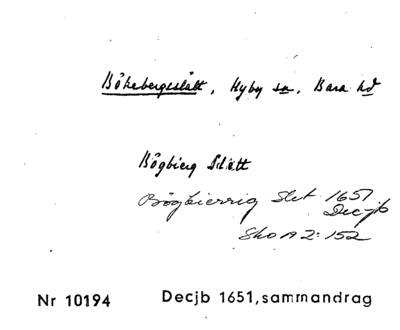 Bökebergsslätt, Hyby sn, Bara hd
Bögbierg Slätt
Bögbierrig Slet 1651
Decjb
Sko A 2: 152
Nr 10194 Decjb 1651, sammandrag